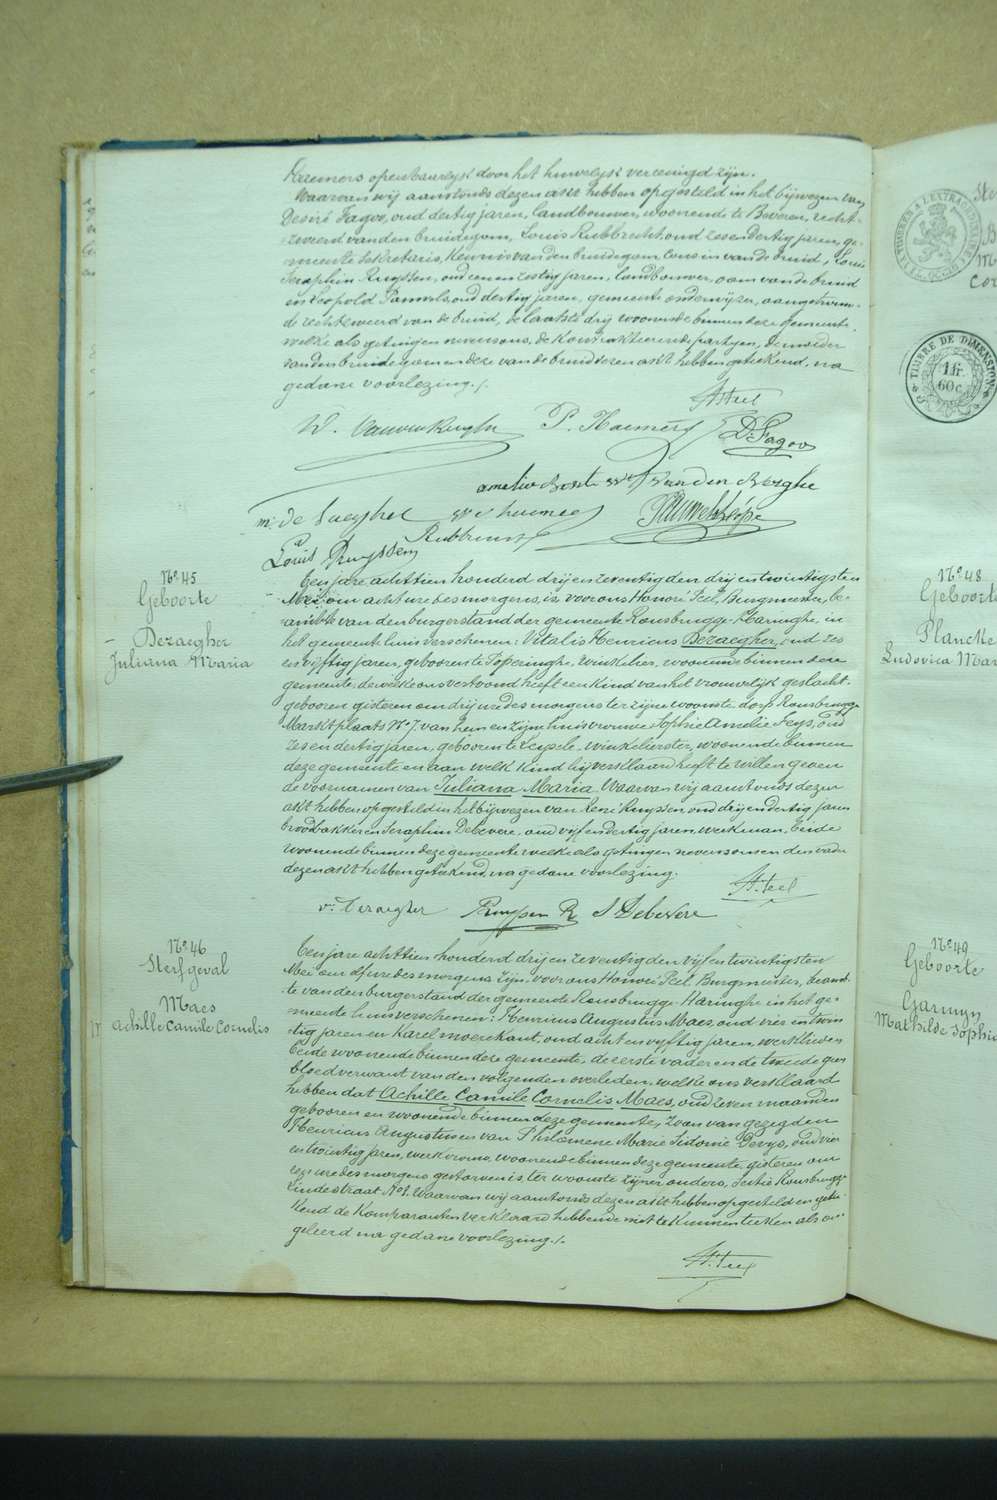 Haemers openbaarlyk door het huwelyk vereenigd zyn.
Waarvan wij aanstonds dezen akt hebben opgesteld in het bijwezen van
Desiré Fagoo, oud dertig jaren, landbouwer, woonende te Beveren, recht-
zweerd van den bruidegom, Louis Rubbrecht, oud zesendertig jaren, ge-
meente sekretaris, kennis van de bruidegom, cousin van de bruid, Louis
Seraphin Ruyssen, oud een en zestig jaren, landbouwer, oom van de bruid
en Leopold Pauwels, oud dertig jaren, gemeente onderwijzer, aangetrouw-
de rechtzweerd van de bruid, de laatste drij woonende binnen deze gemeente,
welke als getuigen nevens ons, de kontrakteerende partyen, de moeder
van den bruidegom en deze van de bruid dezen akt hebben geteekend, na
gedane voorlezing./.
H. Feel
P. Haemers D. Fagoo
amelie Vanden Berghe
Pauwels Léop
Rubbrecht
Louis Ruyssen
N° 45
Geboorte
Dezaegher
Juliana Maria
Ten jare achttien honderd drij en zeventig den drij en twintigsten
Mei, om acht ure des morgens, is voor ons Honoré Feel, Burgmeester, be-
ambte van den burgerstand der gemeente Rousbrugge-Haringhe, in
het gemeentehuis verschenen: Vitalis Henricus Dezaegher, oud zes
en vijftig jaren, geboren te Poperinghe, winkelier, woonende binnen deze
gemeente, dewelke ons vertoond heeft een kind van het vrouwelijk geslacht
geboren gisteren om drij ure des morgens ter zijner woonste dorp Rousbrugge
Marktplaats N° 7, van hem en zijne huisvrouwe Sophie Amelie Feys, oud
zes en dertig jaren, geboren te Leysele, winkelierster, woonende binnen
deze gemeente en aan welk kind hij verklaard heeft te willen geven
de voornamen van Juliana Maria. Waarvan wij aanstonds dezen
akt hebben opgesteld in het bijwezen van René Ruyssen, oud drij en dertig jaren
broodbakker en Seraphin Debevere, oud vijf en dertig jaren, werkman, beide
woonende binnen deze gemeente welke als getuigen nevens ons en den vader
dezen akt hebben geteekend, na gedane voorlezing.
H. Feel
v. Dezaegher Ruyssen R. S Debevere
N° 46
Sterfgeval
Maes
Achille Camile Cornelis
Ten jare achttien honderd drij en zeventig den vijf en twintigsten
Mei om elf ure des morgens zijn voor ons Honoré Feel, Burgmeester, beamb-
te van den burgerstand der gemeente Rousbrugge-Haringhe in het ge-
meentehuis verschenen: Henricus Augustus Maes, oud vier en twin-
tig jaren en Karel Moerekant, oud acht en vyftig jaren, werklieden
beide woonende binnen deze gemeente, de eerste vader en de tweede geen
bloedverwant van den volgenden overleden, welke ons verklaard
hebben dat Achille Camile Cornelis Maes, oud zeven maanden
geboren en woonende binnen deze gemeente, zoon van gezegden
Henricus Augustus en van Philomene Marie Sidonie Devys, oud vier
en twintig jaren, werkvrouw, woonende binnen deze gemeente, gisteren om
ure des morgens gestorven is ter woonste zijner ouders, sectie Rousbrugge
Lindestraat N° 1. Waarvan wij aanstonds dezen akt hebben opgesteld en getee-
kend de komparanten verklaard hebbende niet te kunnen teeken als on-
geleerd na gedane voorlezing./.
H. Feel
TIMBRE DE DIMENSION
1 fr.
60 c.
N° 48
Geboorte
Plancke
Ludovica Mar
N° 49
Geboorte
Garmyn
Mathilde Sophie